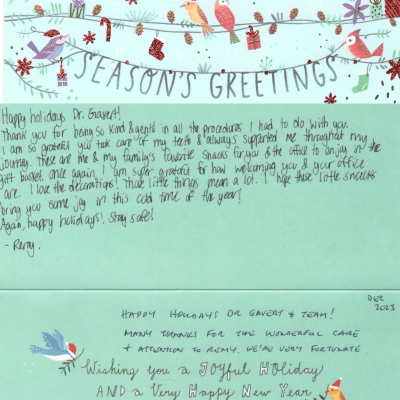 SEASON'S GREETINGS
Happy holidays Dr. Gavert!
Thank you for being so kind & gentle in all the procedures I had to do with you.
I am so grateful you took care of my teeth & always supported me throughout my
journey. These are me & my family's favorite snacks for you & the office to enjoy in the
gift basket. Once again, I am super grateful for how welcoming you & your office
are. I love the decorations! Those little things mean a lot. I hope these little snacks
bring you some joy in this cold time of the year!
Again, happy holidays! Stay safe!
- Remy.
DEC
2023
HAPPY HOLIDAYS DR GAVERT & TEAM!
MANY THANKS FOR THE WONDERFUL CARE
& ATTENTION TO REMY. WE'RE VERY FORTUNATE
Wishing you a JOYful HOliday
AND a Very Happy New Year